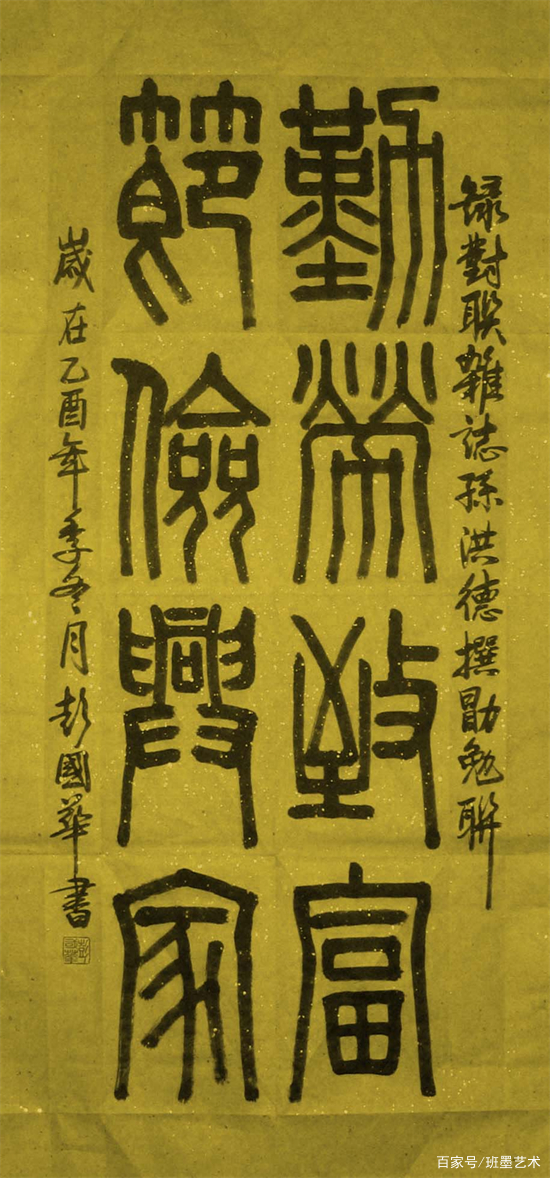 録對联雜誌孫洪德撰勖勉聯
勤勞致富
節儉興家
歲在乙酉年季冬月彭國華書
百家号/班墨艺术